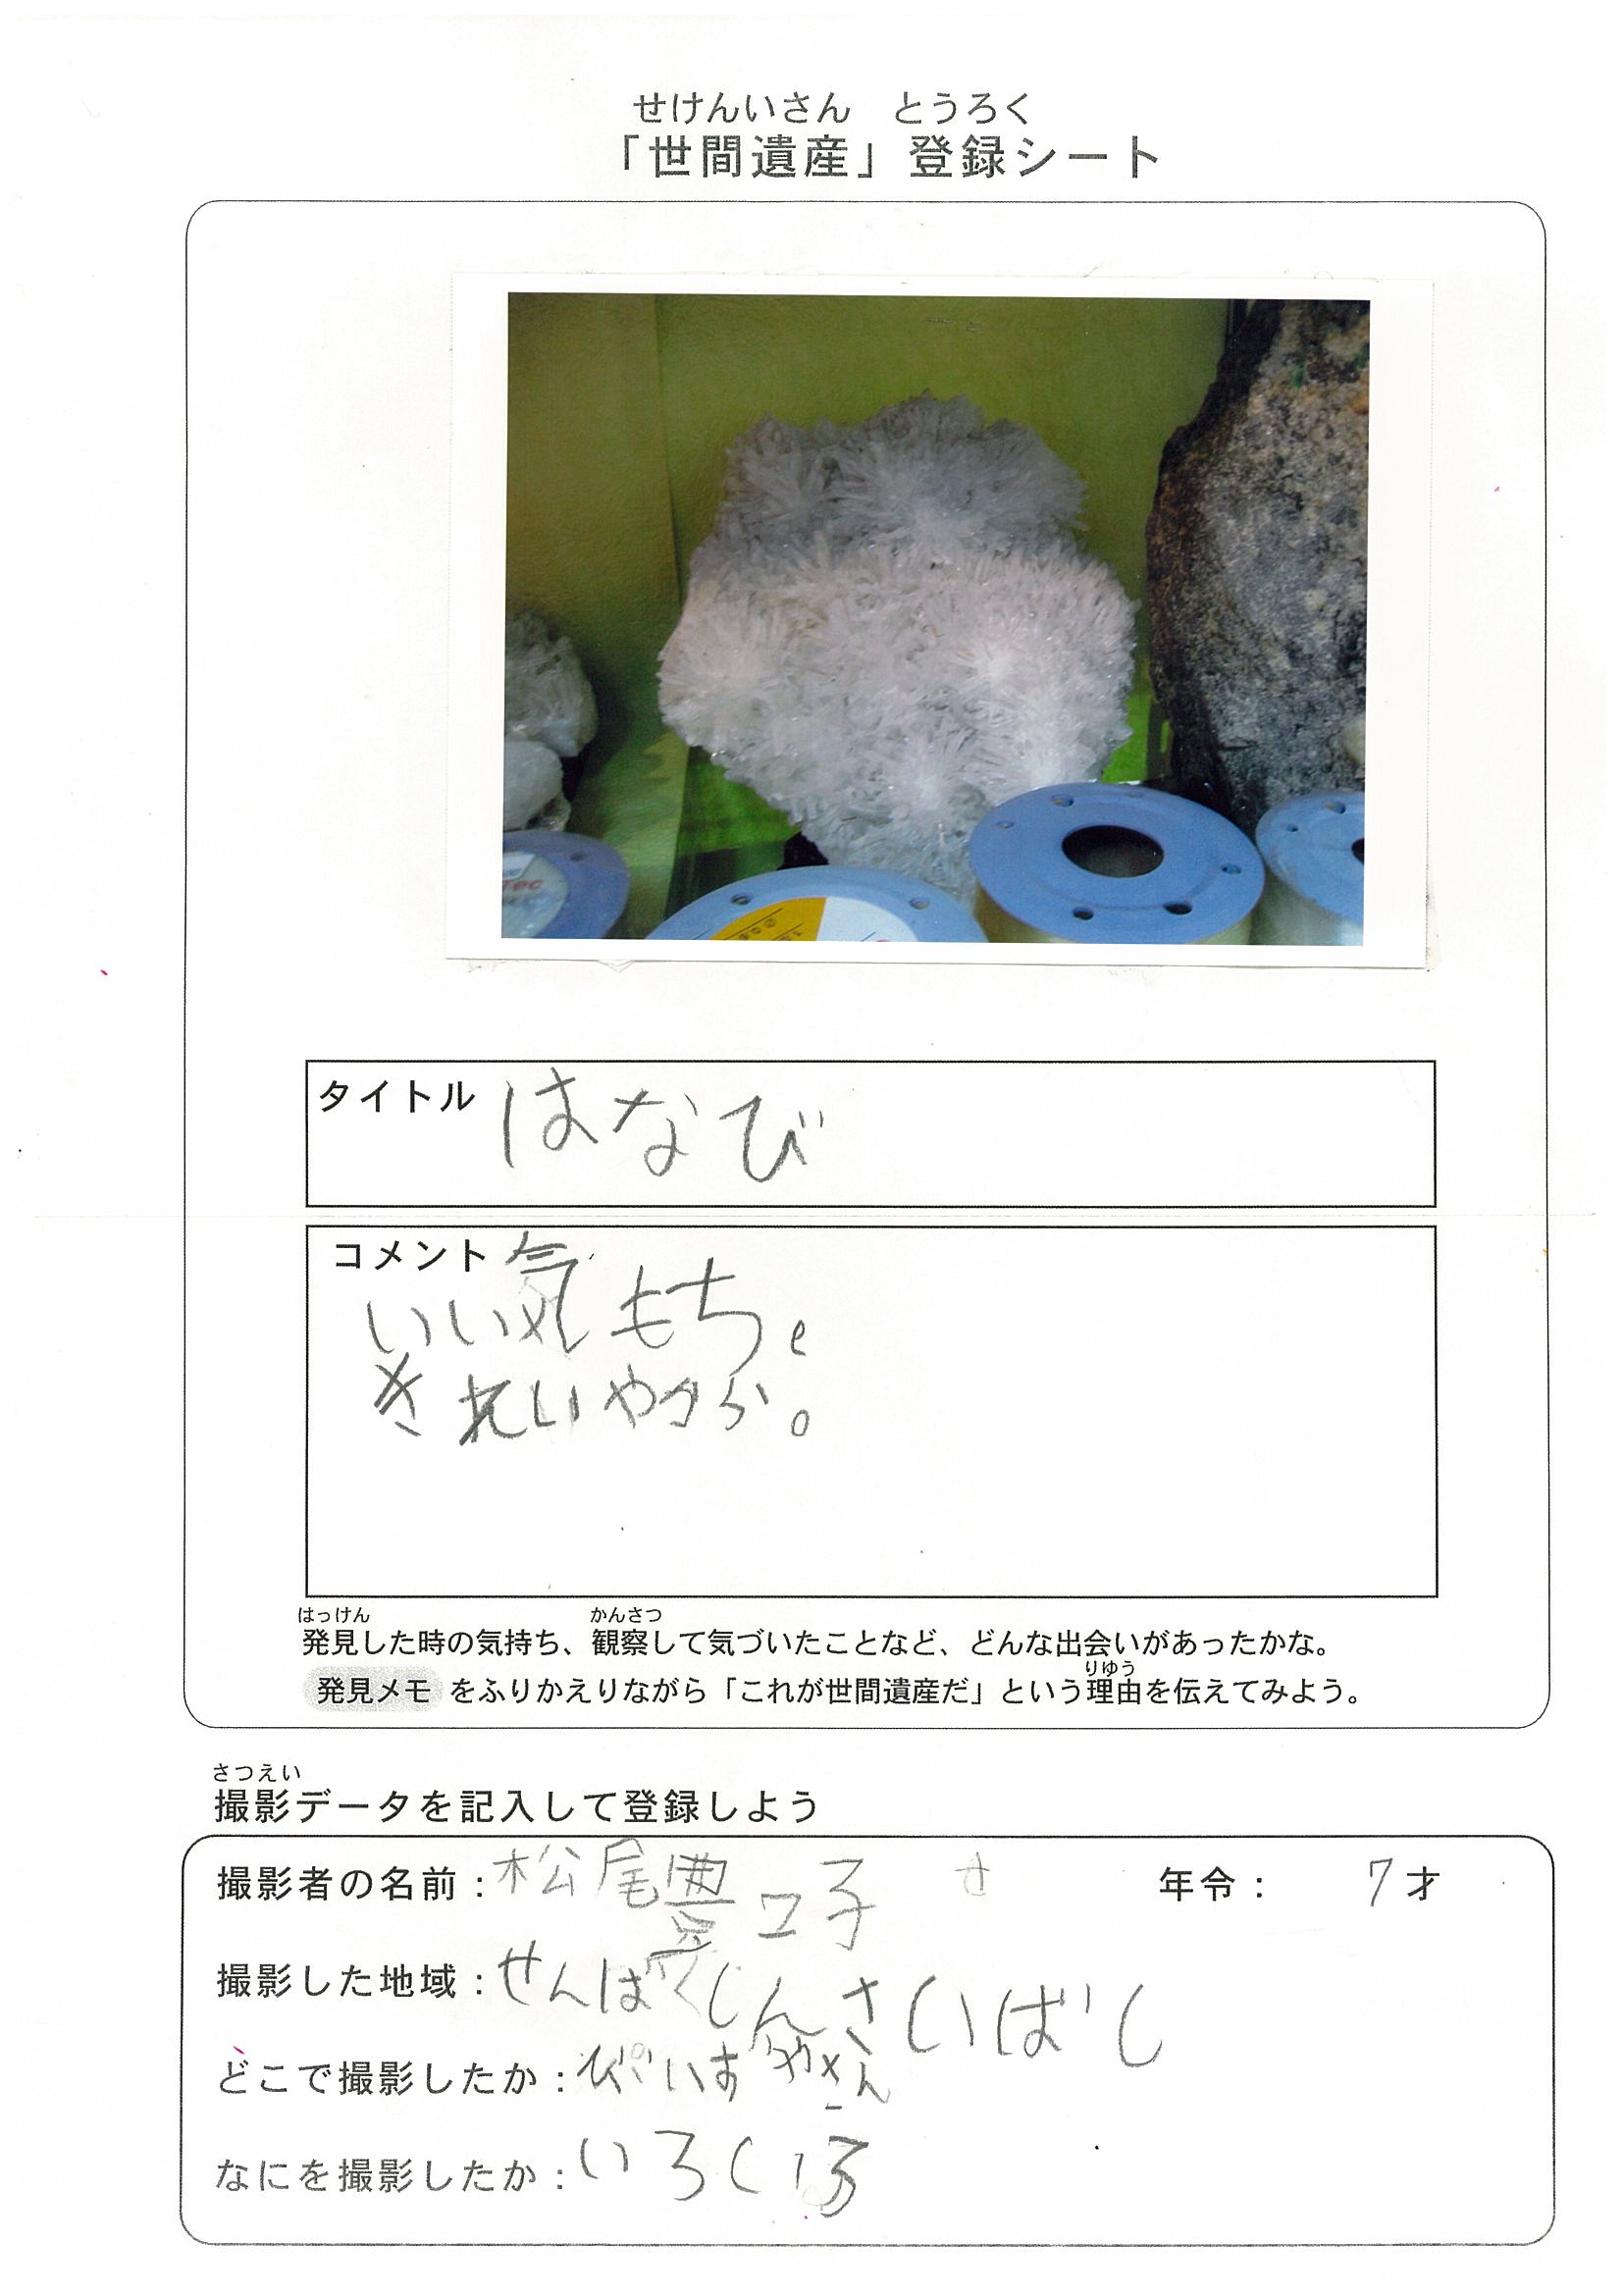 せけんいさん とうろく
「世間遺産」登録シート
Tec
タイトル はなび
コメント
いい気もち。
きれいやから。
はっけん かんさつ
発見した時の気持ち、観察して気づいたことなど、どんな出会いがあったかな。
りゆう
発見メモ をふりかえりながら「これが世間遺産だ」という理由を伝えてみよう。
さつえい
撮影データを記入して登録しよう
撮影者の名前:松尾豊子 年令: 7才
撮影した地域:せんば しんさいばし
どこで撮影したか:びいずやさん
なにを撮影したか:いろいろ